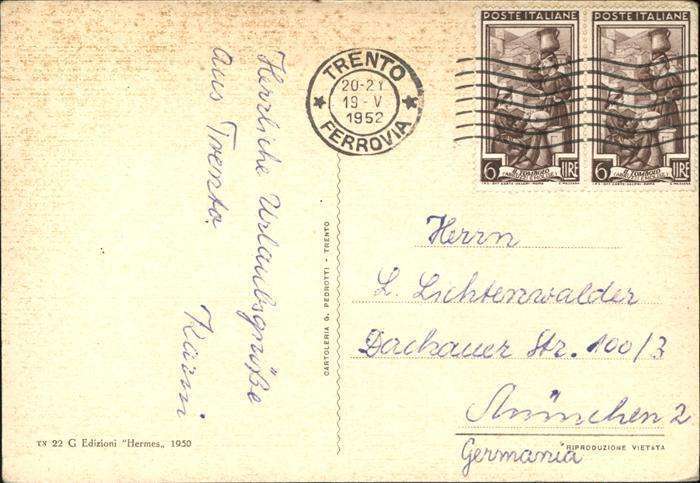 Herrliche Urlaubsgrüße
aus Trento
Karin
TN 22 G Edizioni "Hermes„ 1950
CARTOLERIA G. PEDROTTI - TRENTO
TRENTO
20-21
19-V
1952
FERROVIA
POSTE ITALIANE
6 LIRE
IL TOMBOLO
POSTE ITALIANE
6 LIRE
IL TOMBOLO
Herrn
L. Lichtenwalder
Dachauer Str. 100/3
München 2
Germania
RIPRODUZIONE VIETATA